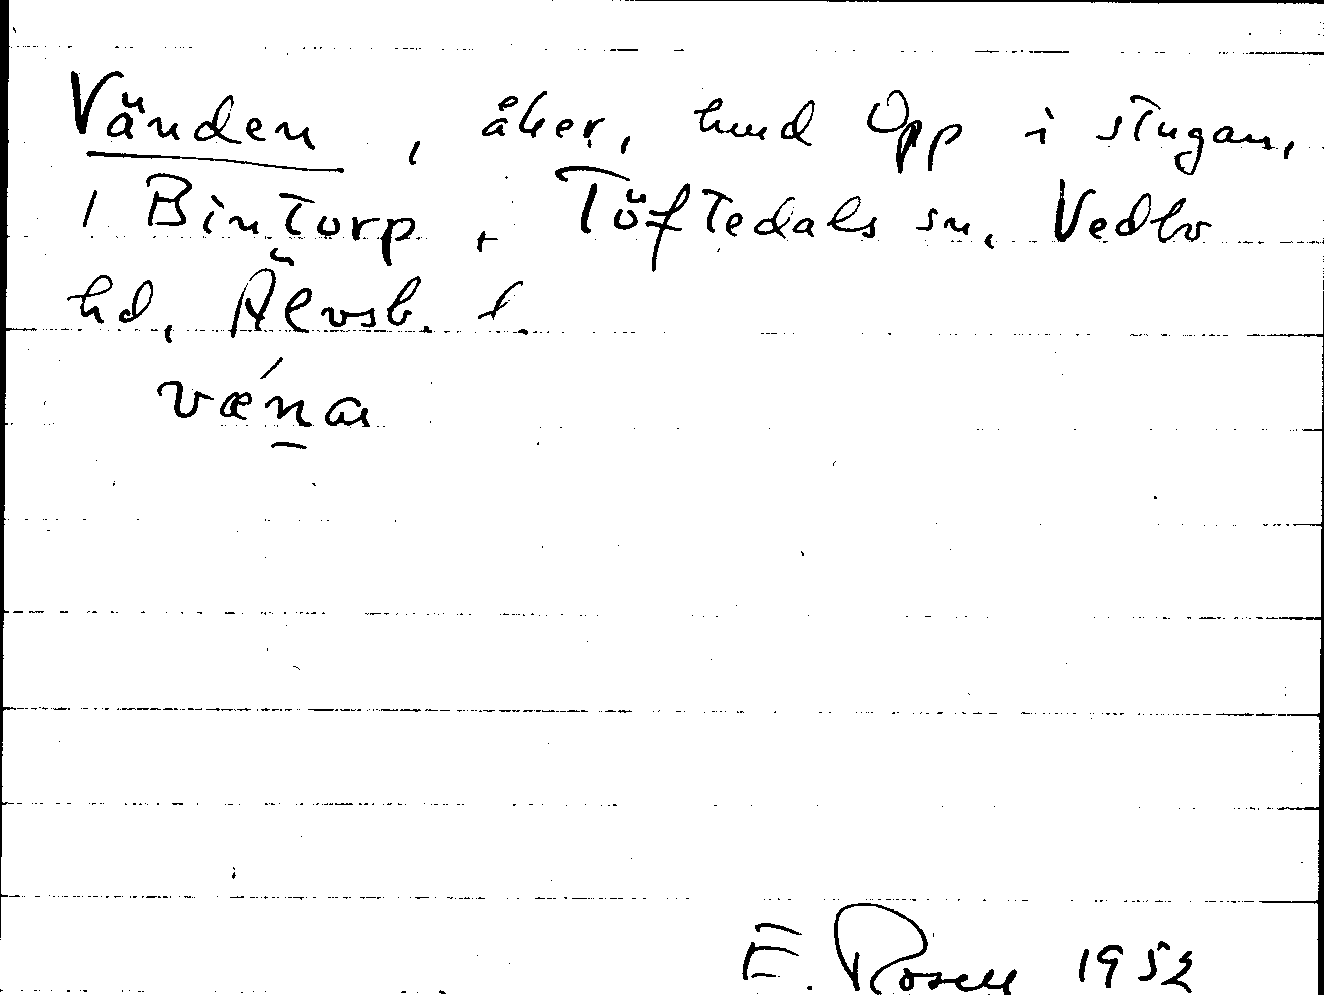 Vänden, åker, hmd Opp i stugan,
1 Bintorp, Töftedals sn, Vedbo
hd, Älvsb. l.
vǽna
E. Rosell 1952